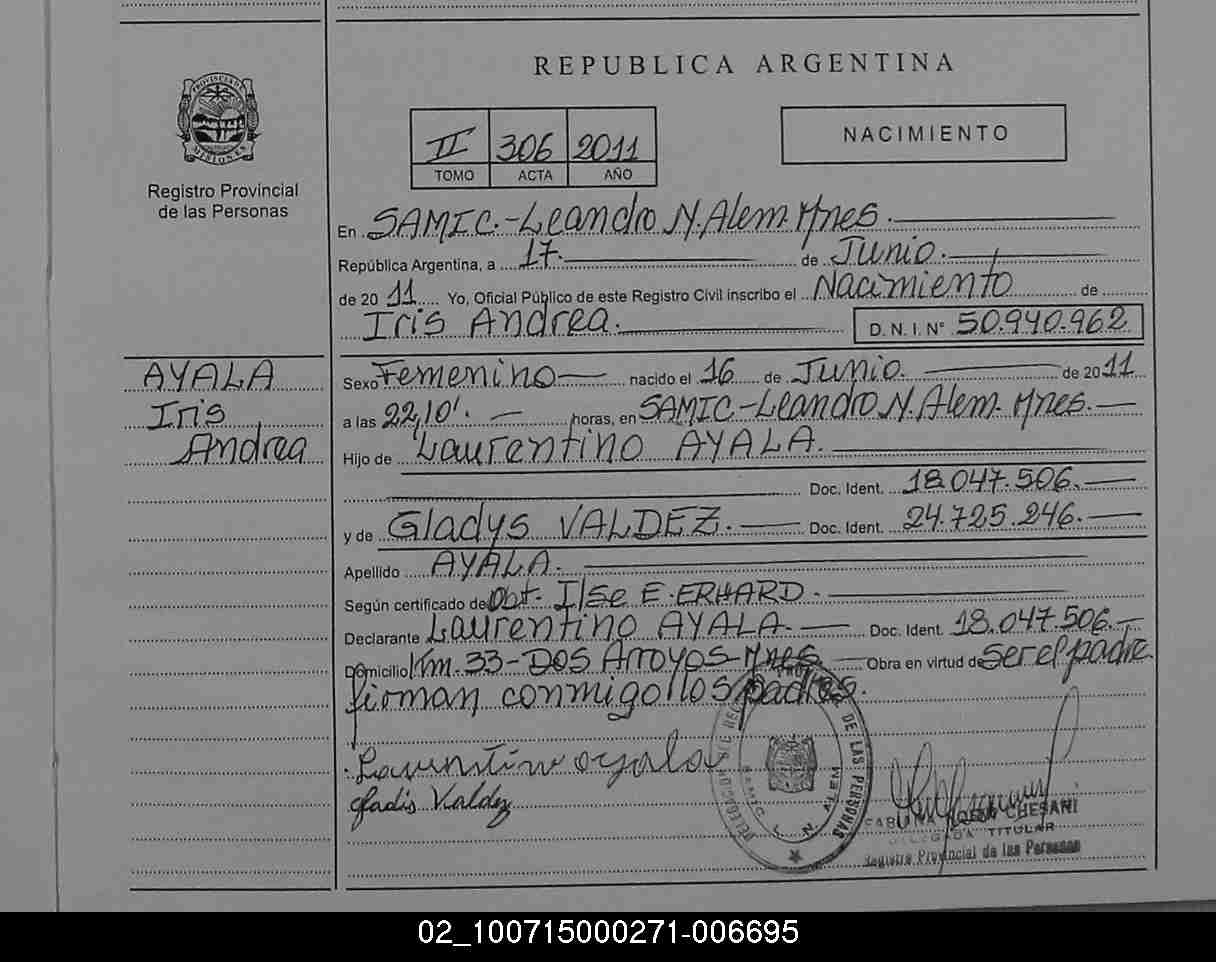 REPUBLICA ARGENTINA
PROVINCIA DE
MISIONES
Registro Provincial
de las Personas
II 306 2011
TOMO ACTA AÑO
NACIMIENTO
En SAMIC.-Leandro N. Alem. Mnes.
República Argentina, a 17. de Junio.
de 2011 Yo, Oficial Público de este Registro Civil inscribo el Nacimiento de
Iris Andrea. D. N. I. N° 50.940.962
AYALA
Iris
Andrea
Sexo Femenino nacido el 16 de Junio. de 2011
a las 22,10'. horas, en SAMIC-Leandro N. Alem. Mnes.
Hijo de Laurentino AYALA.
Doc. Ident. 18.047.506.
y de Gladys VALDEZ. Doc. Ident. 24.725.246.
Apellido AYALA.
Según certificado de Obt. Ilse E. ERHARD.
Declarante Laurentino AYALA. Doc. Ident. 18.047.506.
Domicilio Km. 33-DOS Arroyos-Mnes. Obra en virtud de Ser el padre
firman conmigo los padres.
Laurentino ayala
gladis Valdez
DELEGACION DE LAS PERSONAS
SAMIC L. N. ALEM
CHESANI
DELEGADA TITULAR
Registro Provincial de las Personas
02_100715000271-006695